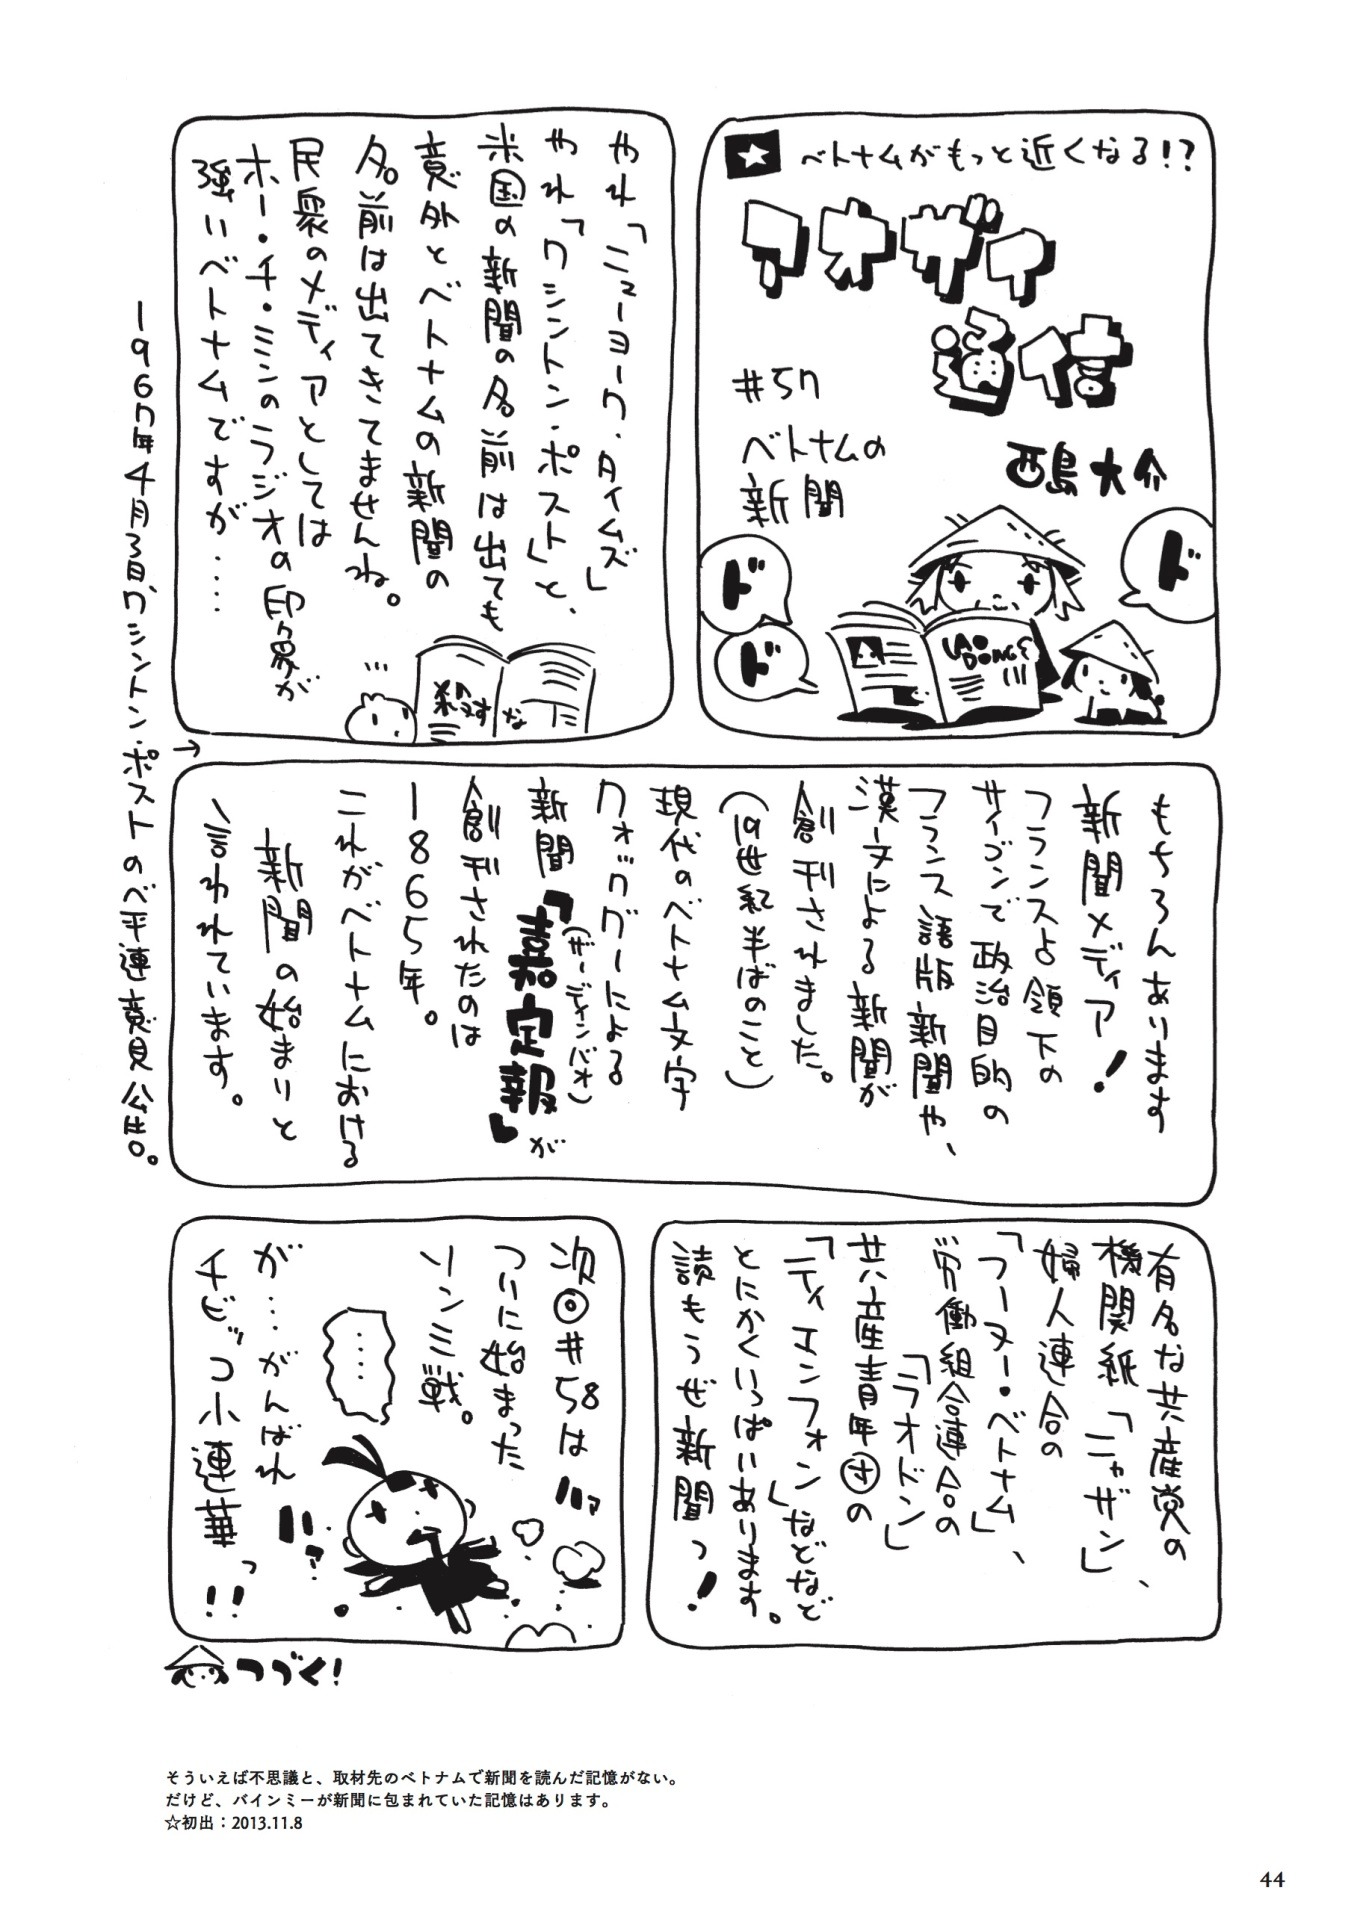 ベトナムがもっと近くなる!?
アオザイ
通信
#57
ベトナムの
新聞
西島大介
ド
ド
ド
LAO
DONG
やれ「ニューヨーク・タイムズ」
やれ「ワシントン・ポスト」と、
米国の新聞の名前は出ても
意外とベトナムの新聞の
名前は出てきてませんね。
民衆のメディアとしては
ホー・チ・ミンのラジオの印象が
強いベトナムですが……
…
殺すな
1967年4月3日、ワシントン・ポストのベ平連意見公告。
→
もちろんあります
新聞メディア!
フランス占領下の
サイゴンで政治目的の
フランス語版新聞や、
漢文による新聞が
創刊されました。
(19世紀半ばのこと)
現代のベトナム文字
クォックグーによる
新聞『嘉定報』が
(ザーディンバオ)
創刊されたのは
1865年。
これがベトナムにおける
新聞の始まりと
言われています。
有名な共産党の
機関紙「ニャザン」、
婦人連合の
「フーヌー・ベトナム」、
労働組合連合の
「ラオドン」
共産青年団の
「ティエンフォン」などなど
とにかくいっぱいあります。
読もうぜ新聞っ!
次回#58は
ついに始まった
ソンミ戦。
……
ハァ
ハァ
が…がんばれ
チビッコ小連華っ!!
つづく!
そういえば不思議と、取材先のベトナムで新聞を読んだ記憶がない。
だけど、バインミーが新聞に包まれていた記憶はあります。
☆初出：2013.11.8
44